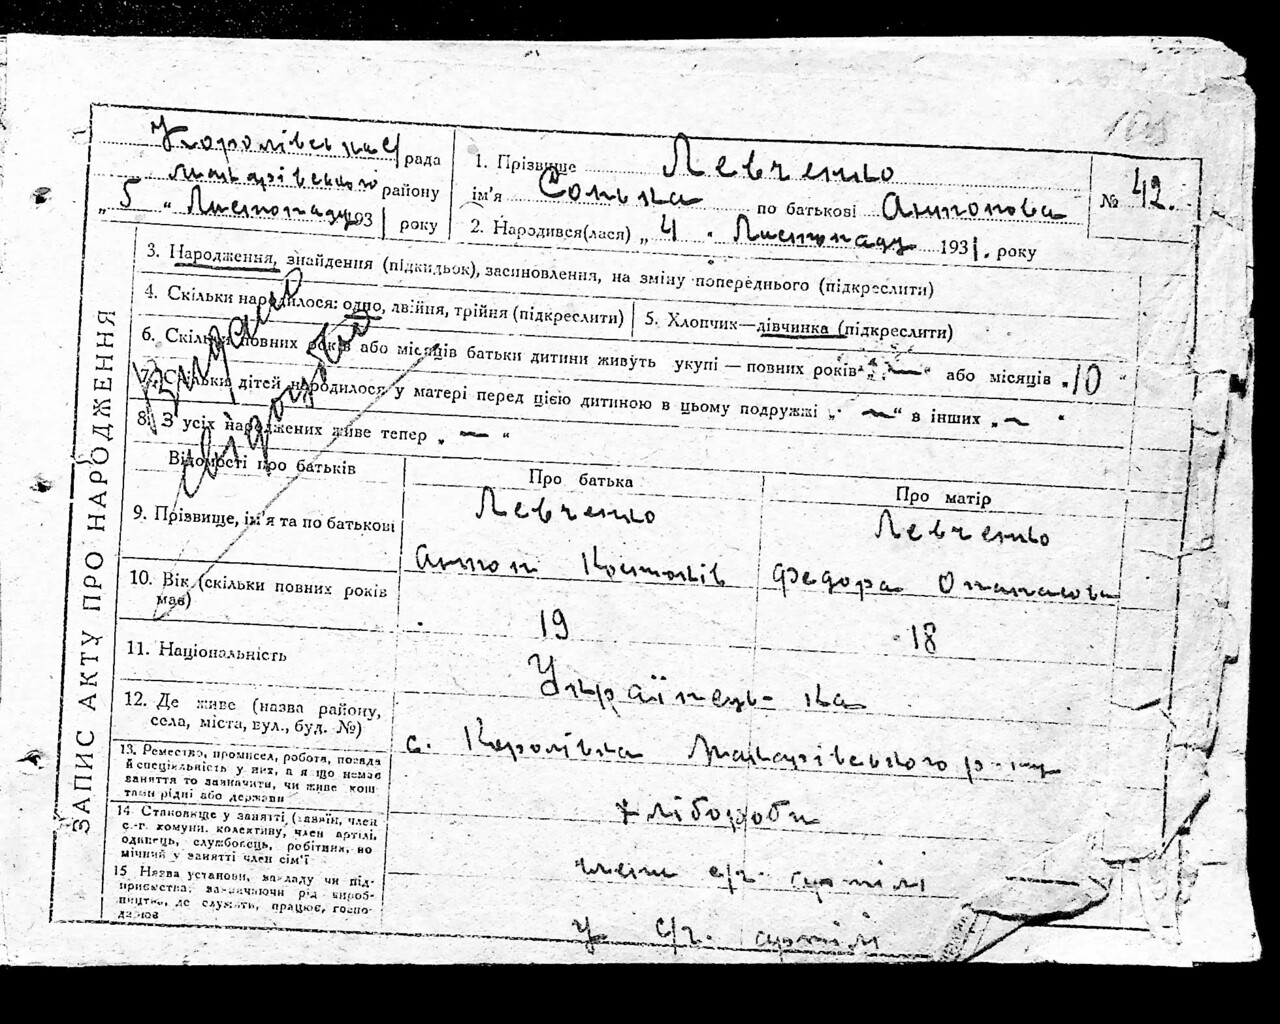 Королівська рада
Макарівського району
„ 5 “ Листопаду 1931 року
1. Прізвище Левченко
ім'я Солька по батькові Антонова
2. Народився(лася) „ 4 . Листопаду 1931. року
№ 42.
ЗАПИС АКТУ ПРО НАРОДЖЕННЯ
3. Народження, знайдення (підкидьок), засиновлення, на зміну попереднього (підкреслити)
4. Скільки народилося: одно, двійня, трійня (підкреслити)
5. Хлопчик—дівчинка (підкреслити)
6. Скільки повних років або місяців батьки дитини живуть укупі — повних років „ — “ або місяців „ 10 “
7. Скільки дітей народилося у матері перед цією дитиною в цьому подружжі „ — “ в інших „ — “
8. З усіх народжених живе тепер „ — “
Видано
свідоцтво
Відомості про батьків
Про батька
Про матір
9. Прізвище, ім'я та по батькові
Левченко
Антон Костьків
Левченко
Федора Опанасова
10. Вік (скільки повних років має)
19
18
11. Національність
Українець- ка
12. Де живе (назва району,
села, міста, вул., буд. №)
с. Королівка Макарівського р-ну
13. Ремество, промисел, робота, посада
й спеціяльність у них, а якщо немає
заняття то зазначити, чи живе кош
тами рідні або держави
хлібороби
14. Становище у занятті, (хазяїн, член
с.-г. комуни, колективу, член артілі,
одинець, службовець, робітник, по
мічний у занятті член сім'ї
члени с/г. артілі
15 Назва установи, закладу чи під-
приємства, зазначаючи рід вироб-
ництва, де служить, працює, госпо-
дарює
у с/г. артілі